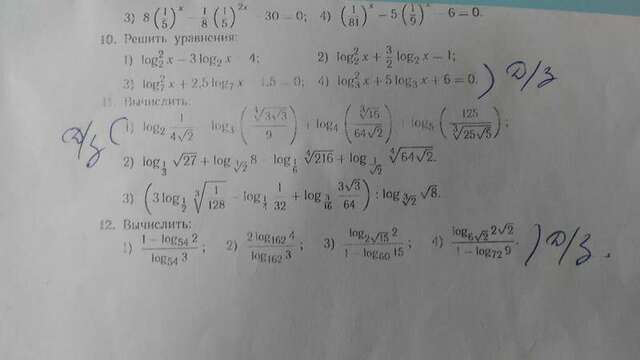 3) 8(1/5)^x − 1/8(1/5)^{2x} − 30 = 0; 4) (1/81)^x − 5(1/9)^x − 6 = 0.
10. Решить уравнения:
1) log₂² x − 3 log₂ x = 4; 2) log₂² x + 3/2 log₂ x = 1;
3) log₇² x + 2,5 log₇ x − 1,5 = 0; 4) log₃² x + 5 log₃ x + 6 = 0. ) Д/з
11. Вычислить:
Д/з ( 1) log₂ 1/(4√2) − log₃ (∜(3√3)/9) + log₄ (∛16/(64√2)) + log₅ (125/∛(25√5));
2) log_{1/3} √27 + log_{∛2} 8 − log_{1/6} ∜216 + log_{1/√2} ∜(64√2).
3) (3 log_{1/2} ∛(1/128) − log_{1/4} 1/32 + log_{3/16} (3√3)/64) : log_{∛2} √8.
12. Вычислить:
1) (1 − log₅₄ 2)/(log₅₄ 3); 2) (2 log₁₆₂ 4)/(log₁₆₂ 3); 3) (log_{2√15} 2)/(1 − log₆₀ 15); 4) (log_{6√2} 2√2)/(1 − log₇₂ 9). ) Д/з.